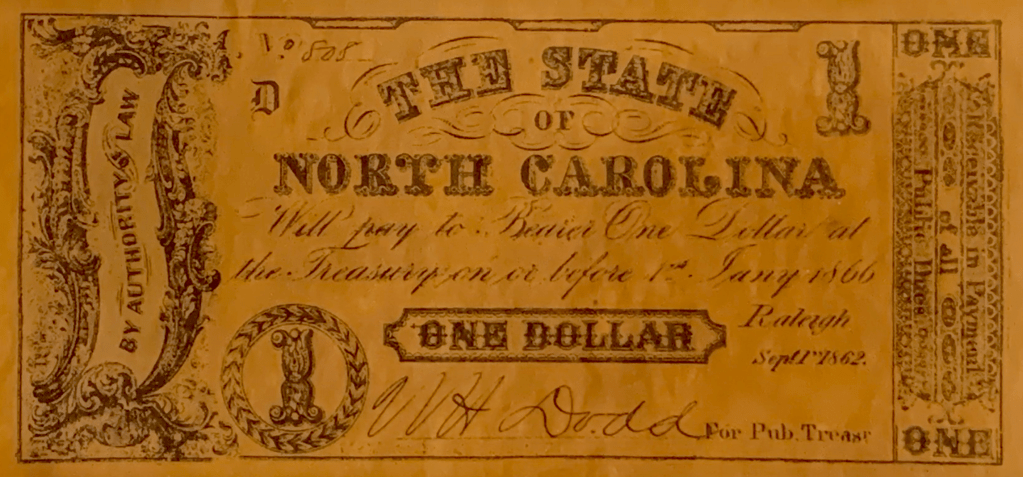 BY AUTHORITY OF LAW
No 808
D
THE STATE
OF
NORTH CAROLINA
1
Will pay to Bearer One Dollar at
the Treasury on or before 1st. Jany 1866
ONE DOLLAR
Raleigh
Sept. 1st 1862.
1
W H Dodd
For Pub. Treasr
ONE
Receivable in Payment
of all
Public Dues
ONE